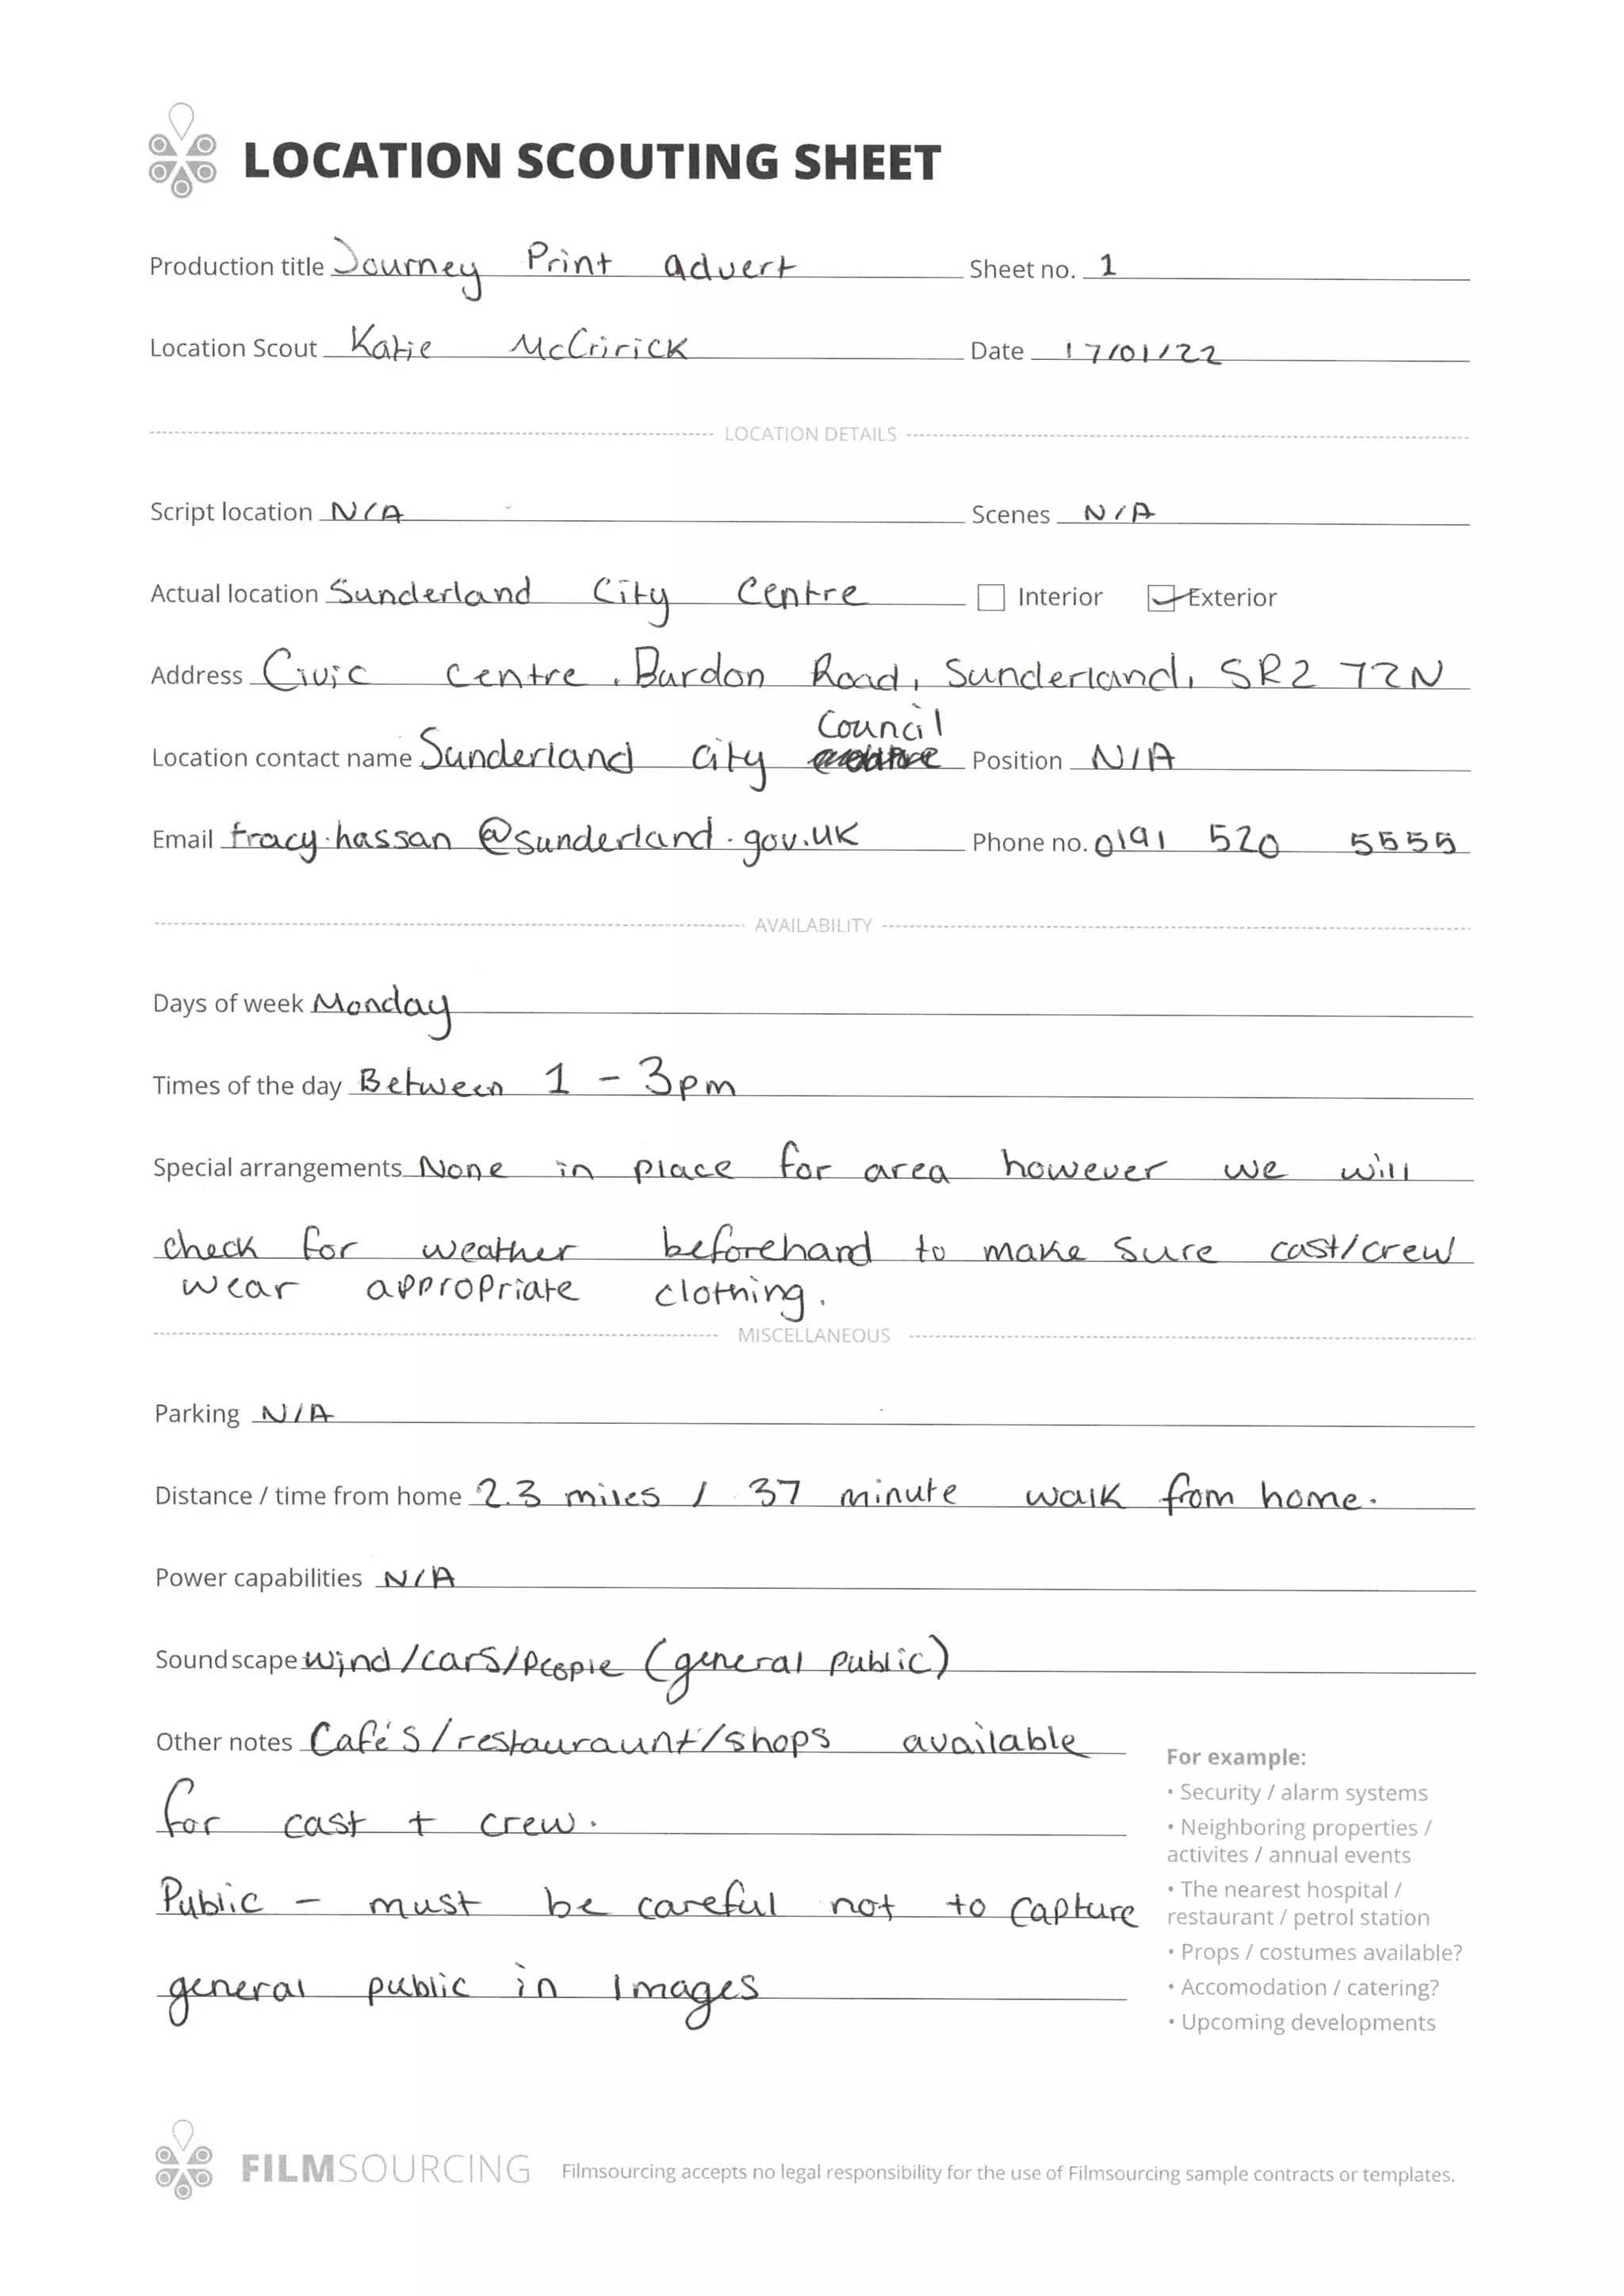 LOCATION SCOUTING SHEET
Production title Journey Print advert Sheet no. 1
Location Scout Katie McCririck Date 17/01/22
LOCATION DETAILS
Script location N/A Scenes N/A
Actual location Sunderland City Centre Interior Exterior
Address Civic Centre, Burdon Road, Sunderland, SR2 7ZN
Council
Location contact name Sunderland city Position N/A
Email tracy.hassan@sunderland.gov.uk Phone no. 0191 520 5555
AVAILABILITY
Days of week Monday
Times of the day Between 1 - 3pm
Special arrangements None in place for area however we will
check for weather beforehand to make sure cast/crew
wear appropriate clothing.
MISCELLANEOUS
Parking N/A
Distance / time from home 2.3 miles / 37 minute walk from home.
Power capabilities N/A
Soundscape wind/cars/people (general public)
Other notes Cafés/restauraunt/shops available
for cast + crew.
Public - must be careful not to capture
general public in Images
For example:
• Security / alarm systems
• Neighboring properties /
activites / annual events
• The nearest hospital /
restaurant / petrol station
• Props / costumes available?
• Accomodation / catering?
• Upcoming developments
FILMSOURCING Filmsourcing accepts no legal responsibility for the use of Filmsourcing sample contracts or templates.